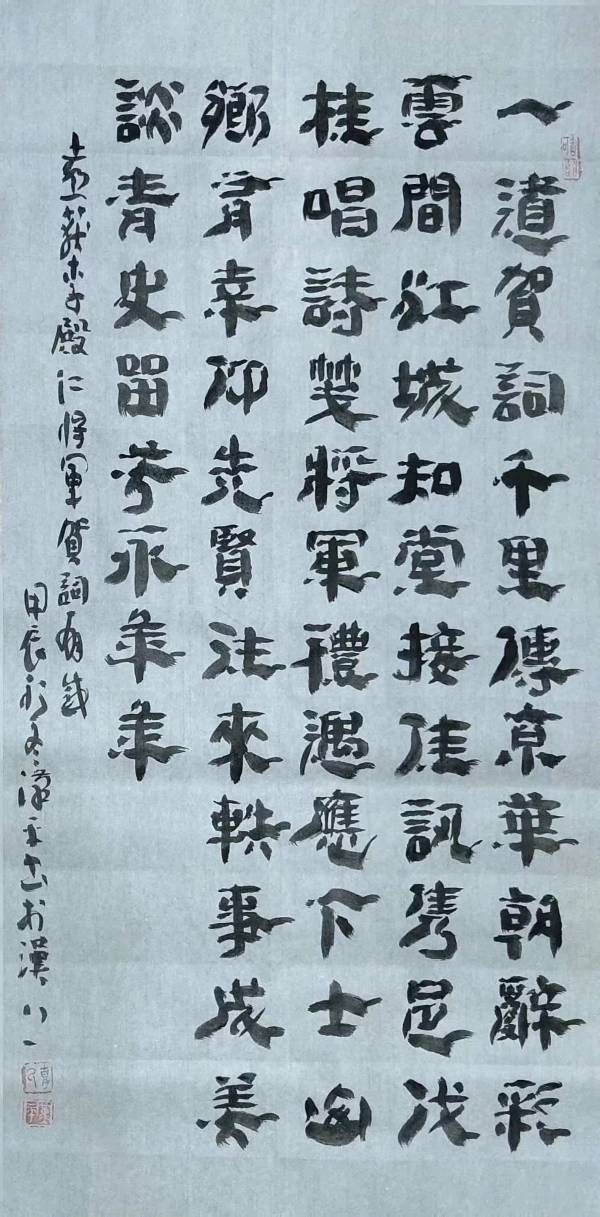 一賀詞千里傳京華朝辭彩
雲間江城知堂接佳訊隽邑伐
桂唱詩箋將軍禮遇應下士
鄉有幸仰先賢往來軼事成美
談青史留芳永年年
李殿仁將軍賀詞有感
甲辰初冬漢平書於漢口